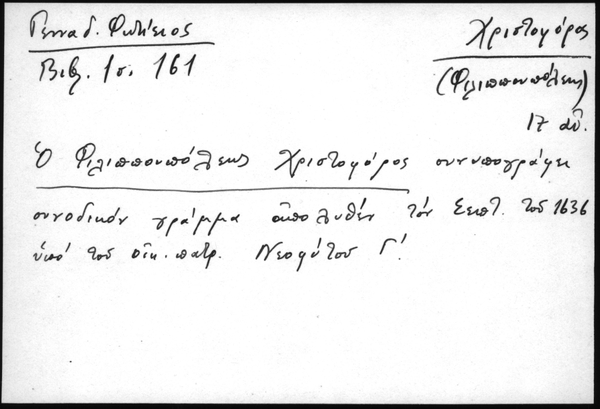 Γενναδ. Φωτίειος
Βιβλ. 1σ. 161
Χριστοφόρος
(Φιλιππουπόλεως)
17 αἰ.
Ὁ Φιλιππουπόλεως Χριστοφόρος συνυπογράφει
συνοδικόν γράμμα ἀπολυθέν τόν Σεπτ. τοῦ 1636
ὑπό τοῦ οἰκ. πατρ. Νεοφύτου Γ΄.